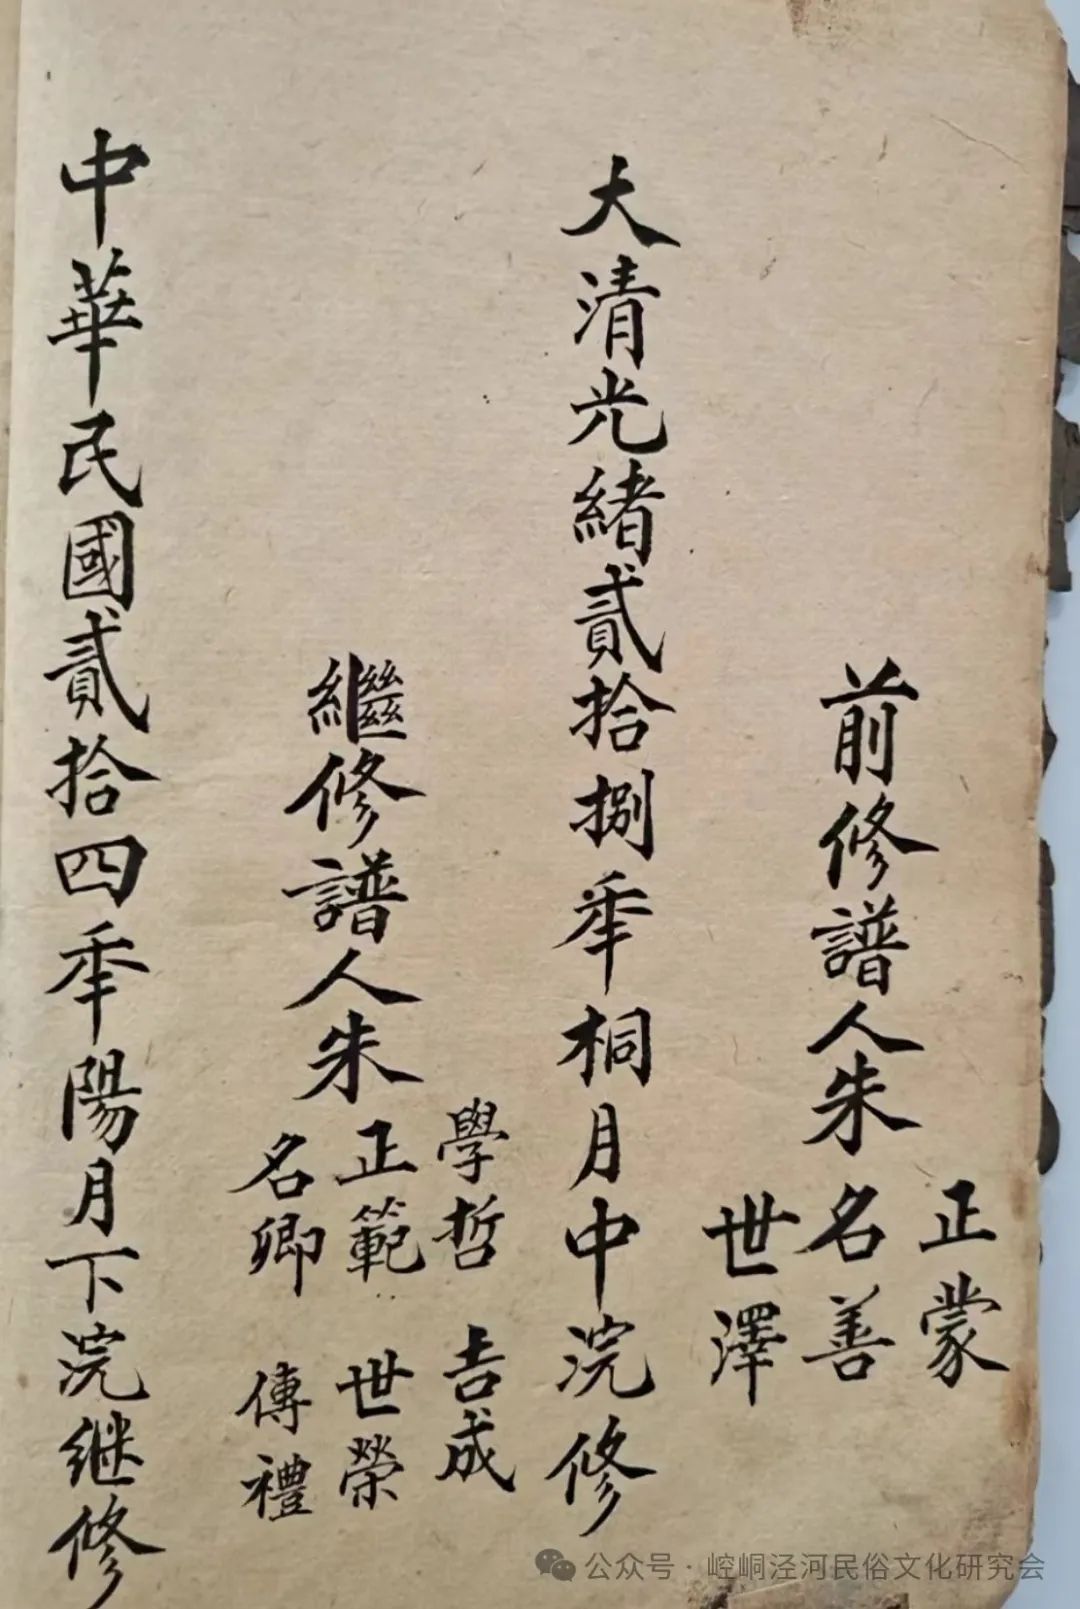 前修譜人朱
正蒙
名善
世澤
大清光緒貳拾捌年桐月中浣修
繼修譜人朱
學哲 吉成
正範 世榮
名卿 傳禮
中華民國貳拾四年陽月下浣继修
公众号 · 崆峒泾河民俗文化研究会